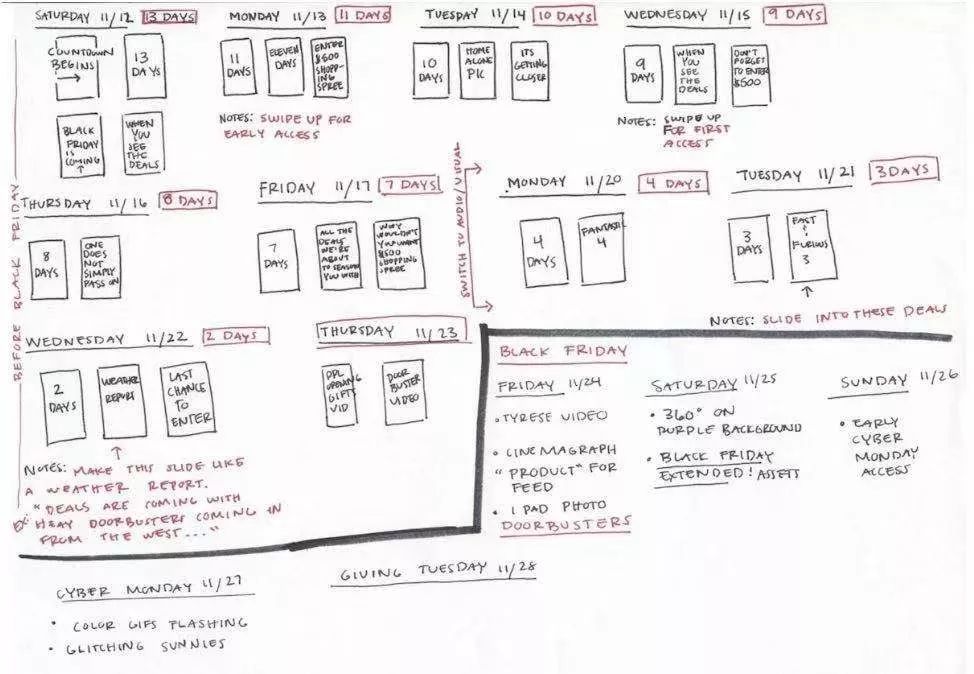 SATURDAY 11/12 13 DAYS
COUNTDOWN
BEGINS
13
DAYS
BLACK
FRIDAY
IS
COMING
WHEN
YOU
SEE
THE
DEALS
MONDAY 11/13 11 DAYS
11
DAYS
ELEVEN
DAYS
ENTER
$500
SHOPP-
ING
SPREE
NOTES: SWIPE UP FOR
EARLY ACCESS
TUESDAY 11/14 10 DAYS
10
DAYS
HOME
ALONE
PIC
ITS
GETTING
CLOSER
WEDNESDAY 11/15 9 DAYS
9
DAYS
WHEN
YOU
SEE
THE
DEALS
DON'T
FORGET
TO ENTER
$500
NOTES: SWIPE UP
FOR FIRST
ACCESS
BEFORE BLACK FRIDAY
THURSDAY 11/16 8 DAYS
8
DAYS
ONE
DOES
NOT
SIMPLY
PASS ON
FRIDAY 11/17 7 DAYS
7
DAYS
ALL THE
DEALS
WE'RE
ABOUT
TO SEASON
YOU WITH
WHY
WOULDN'T
YOU WANT
$500
SHOPPING
SPREE
SWITCH TO AUDIO/VISUAL
MONDAY 11/20 4 DAYS
4
DAYS
FANTASTIC
4
TUESDAY 11/21 3 DAYS
3
DAYS
FAST
&
FURIOUS
3
NOTES: SLIDE INTO THESE DEALS
WEDNESDAY 11/22 2 DAYS
2
DAYS
WEATHER
REPORT
LAST
CHANCE
TO
ENTER
NOTES: MAKE THIS SLIDE LIKE
A WEATHER REPORT.
EX: "DEALS ARE COMING WITH
HEAVY DOORBUSTERS COMING IN
FROM THE WEST..."
THURSDAY 11/23
PPL
OPENING
GIFTS
VID
DOOR
BUSTER
VIDEO
BLACK FRIDAY
FRIDAY 11/24
• TYRESE VIDEO
• CINEMAGRAPH
"PRODUCT" FOR
FEED
• IPAD PHOTO
DOORBUSTERS
SATURDAY 11/25
• 360° ON
PURPLE BACKGROUND
• BLACK FRIDAY
EXTENDED! ASSETS
SUNDAY 11/26
• EARLY
CYBER
MONDAY
ACCESS
CYBER MONDAY 11/27
• COLOR GIFS FLASHING
• GLITCHING SUNNIES
GIVING TUESDAY 11/28